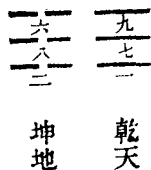 九七一
乾天
六八二
坤地